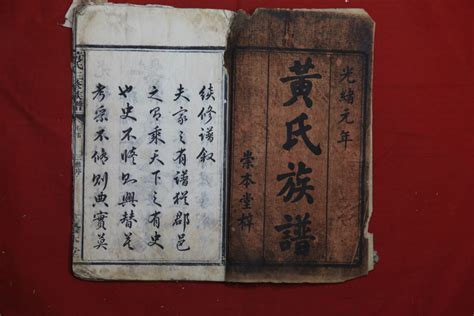 光緒元年
黃氏族譜
崇本堂梓
續修譜叙
夫家之有譜猶郡邑
之有乘天下之有史
也史不修則興替莫
考乘不修則典實莫